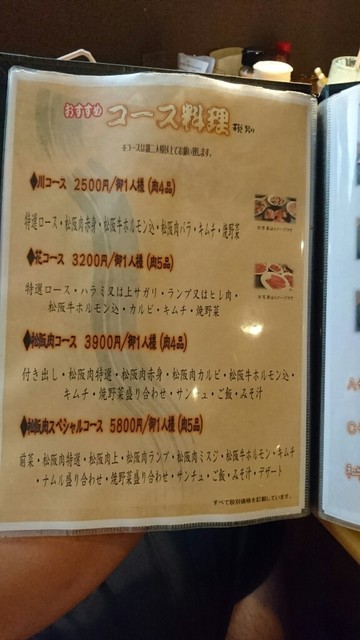 おすすめ コース料理
※コースは御二人様以上でお願い致します。
◆川コース 2500円/御1人様(肉4品)
特選ロース・松阪肉赤身・松阪牛ホルモン込・松阪肉バラ・キムチ・焼野菜
◆花コース 3200円/御1人様(肉5品)
特選ロース・ハラミ又は上サガリ・ランプ又はヒレ肉・
松阪牛ホルモン込・カルビ・キムチ・焼野菜
◆松阪肉コース 3900円/御1人様(肉4品)
付き出し・松阪肉特選・松阪肉赤身・松阪肉カルビ・松阪牛ホルモン込・
キムチ・焼野菜盛り合わせ・サンチュ・ご飯・みそ汁
◆松阪肉スペシャルコース 5800円/御1人様(肉5品)
前菜・松阪肉特選・松阪肉上・松阪肉ランプ・松阪肉ミスジ・松阪牛ホルモン・キムチ
・ナムル盛り合わせ・焼野菜盛り合わせ・サンチュ・ご飯・みそ汁・デザート
すべて税別価格を記載しています。